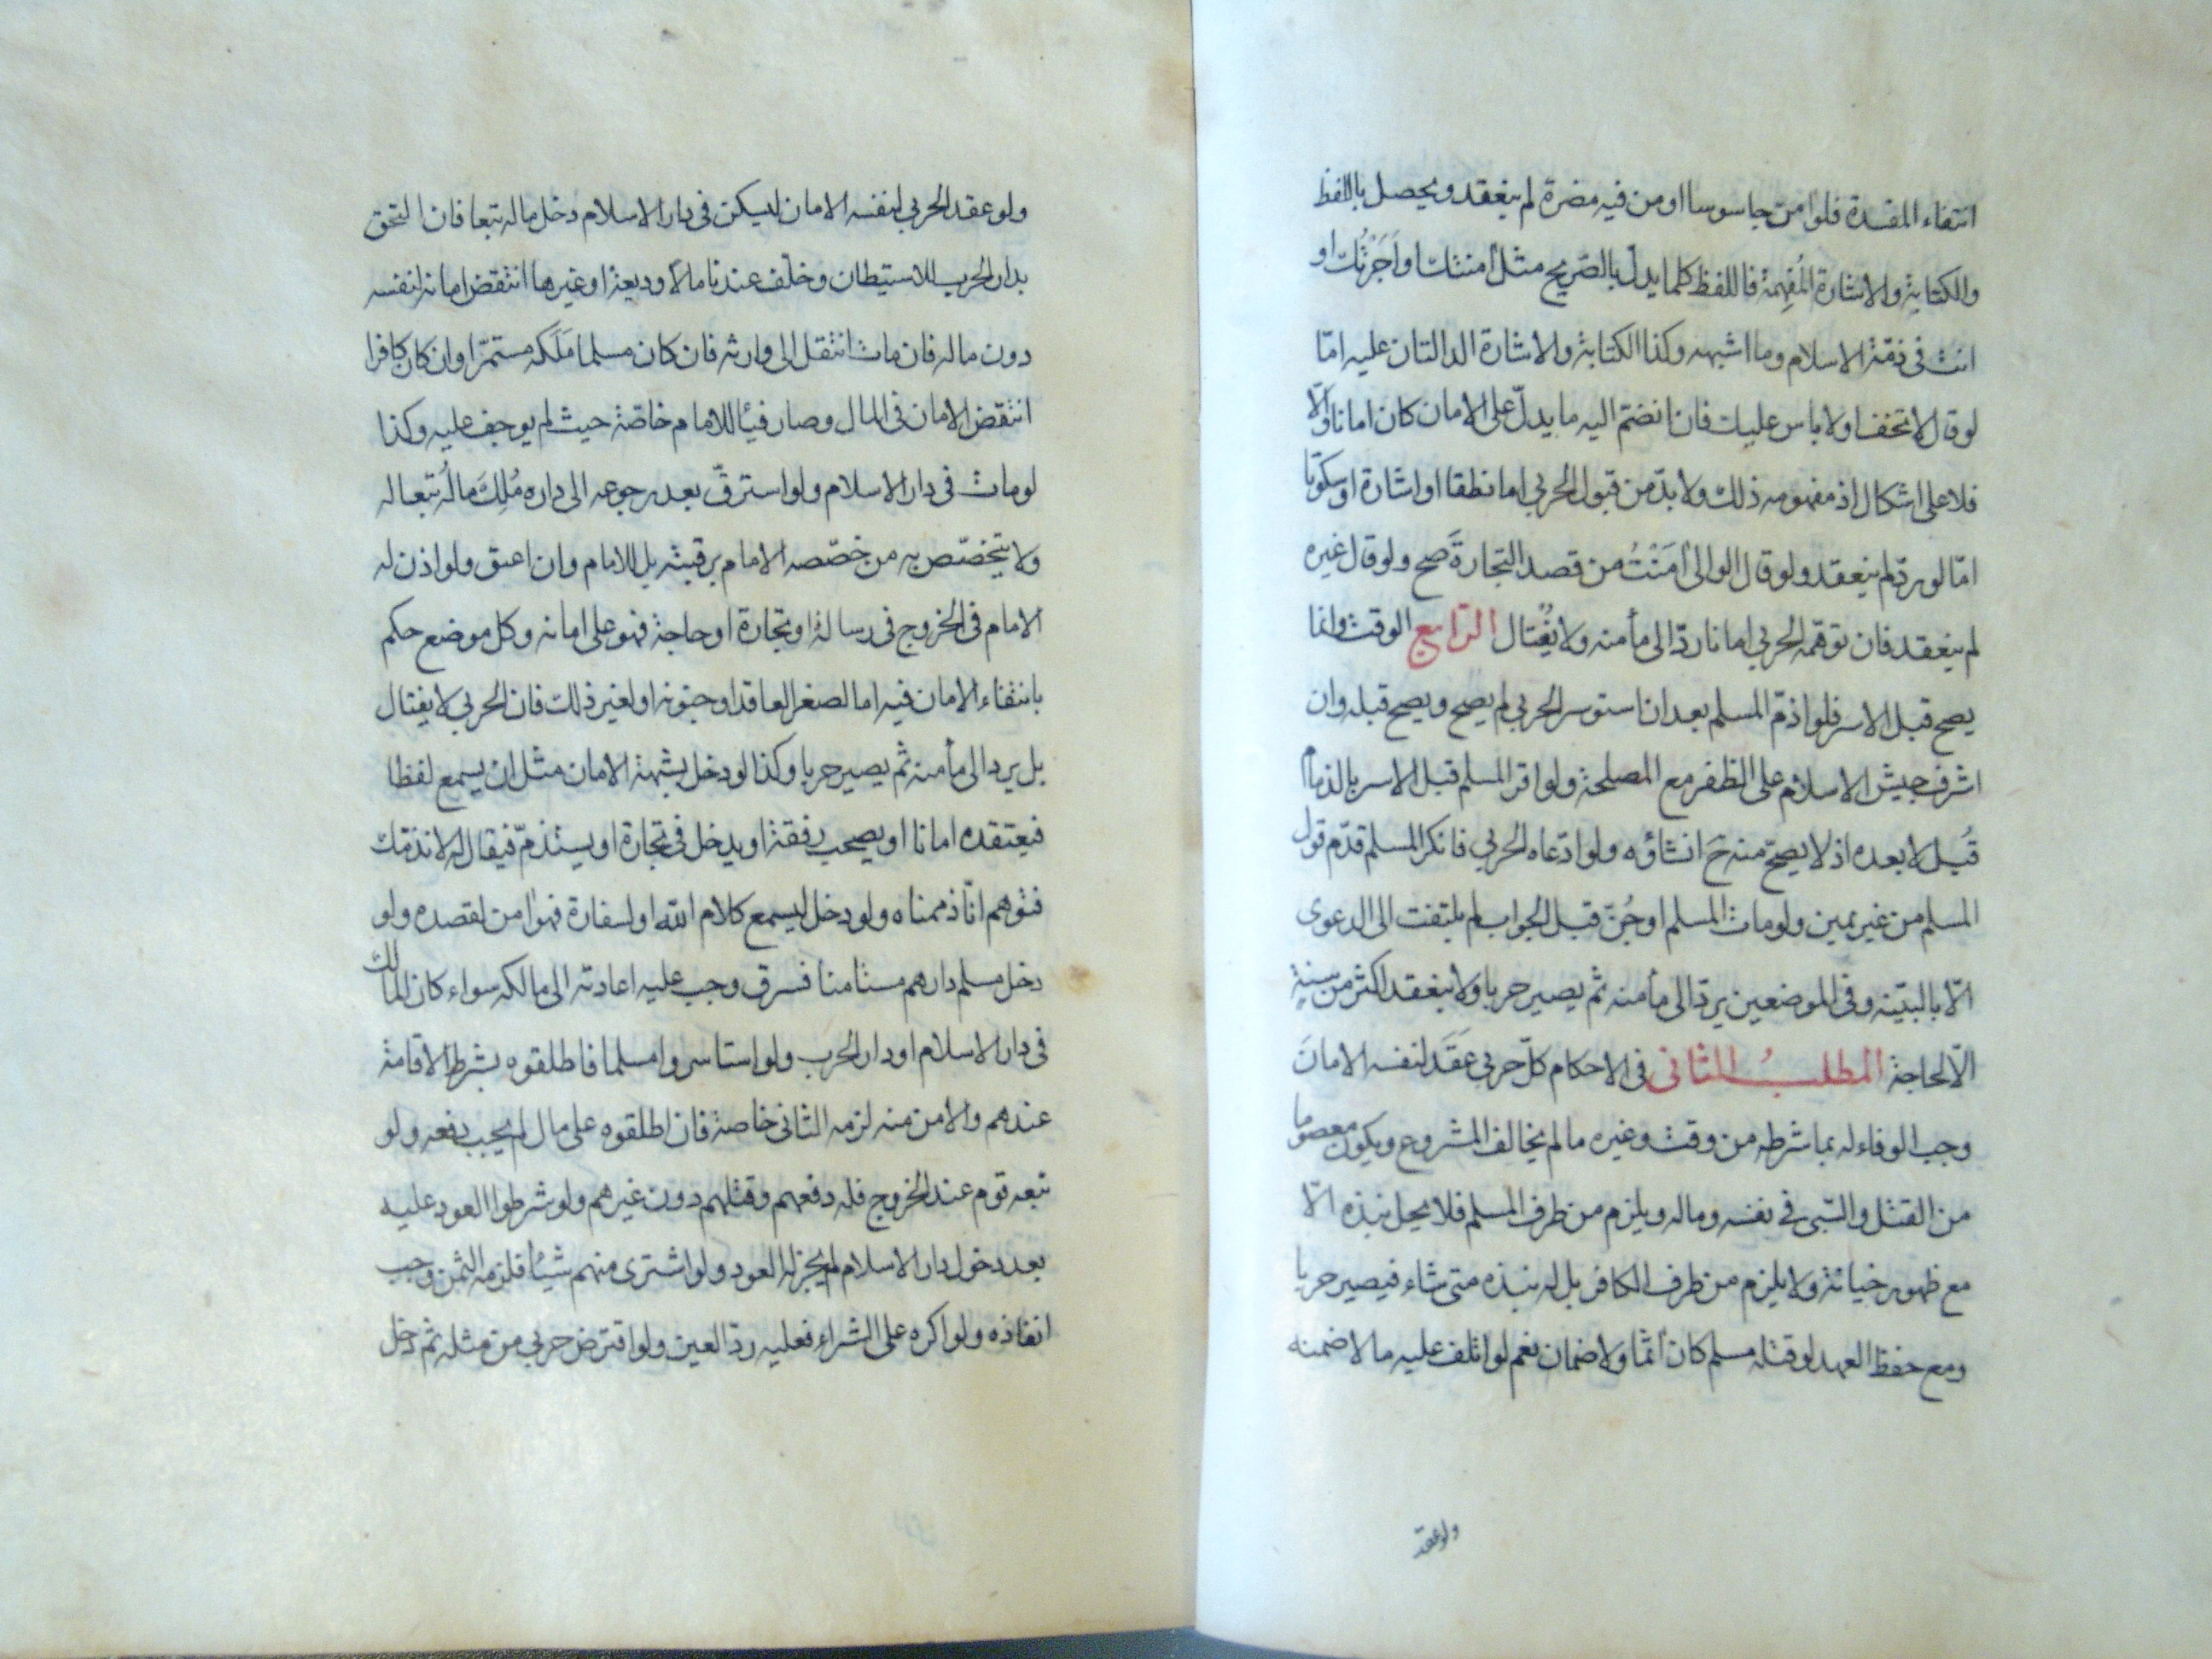 انتفاء المفسدة فلو امن جاسوسا او من فيه مضرة لم ينعقد ويحصل باللفظ
والكتابة والاشارة المُفهِمة فاللفظ كلما يدلّ بالصّريح مثل أمنتك او اَجَرْتُك او
انت فى ذمّة الاسلام وما اشبهه وكذا الكتابة والاشارة الدالتان عليه امّا
لو قال لا تخف او لا باس عليك فان انضمّ اليه ما يدلّ على الامان كان امانا والّا
فلا على اشكال اذ مفهومه ذلك ولا بدّ من قبول الحربي اما نطقا او اشارة او سكوتا
امّا لو ردّ لم ينعقد ولو قال الوالى أمَنْتُ من قصد التجارةَ صح ولو قال غيره
لم ينعقد فان توهّمه الحربي امانا ردّ الى مأمنه ولا يُغْتال الرّابع الوقت وانما
يصح قبل الاسر فلو اذمّ المسلم بعد ان استوسر الحربي لم يصح ويصح قبله وان
اشرف جيش الاسلام على الظفر مع المصلحة ولو اقرّ المسلم قبل الاسر بالذمام
قُبل لا بعده اذ لا يصحّ منه ح انشاؤه ولو ادّعاه الحربي فانكر المسلم قدّم قول
المسلم من غير يمين ولو مات المسلم او جُنّ قبل الجواب لم يلتفت الى الدعوى
الّا بالبيّنه وفى الموضعين يردّ الى مأمنه ثم يصير حربا ولا ينعقد اكثر من سنةٍ
الّا لحاجة المطلبُ الثانى فى الاحكام كلّ حربي عَقَد لنفسه الامانَ
وجب الوفاء له بما شرطه من وقت وغيره ما لم يخالف المشروع ويكون معصوما
من القتل والسّبى فى نفسه وماله ويلزم من طرف المسلم فلا يحل نبذه الّا
مع ظهور خيانة ولا يلزم من طرف الكافر بل له نبذه متى شاء فيصير حربا
ومع حفظ العهد لو قتله مسلم كان اثما ولا ضمان نعم لو اتلف عليه مالا ضمنه
ولو عقد
ولو عقد الحربي لنفسه الامان ليسكن فى دار الاسلام دخل ماله تبعا فان التحق
بدار الحرب للاستيطان وخلّف عندنا مالا وديعة او غيرها انتقض امانه لنفسه
دون ماله فان مات انتقل الى وارثه فان كان مسلما مَلَكَه مستمرّا وان كان كافرا
انتقض الامان فى المال وصار فيئا للامام خاصّة حيث لم يوجف عليه وكذا
لو مات فى دار الاسلام ولو استرقّ بعد رجوعه الى داره مُلِكَ مالُه تبعا له
ولا يتخصّص به من خصّصه الامام برقبته بل للامام وان اعتق ولو اذن له
الامام فى الخروج فى رسالة او تجارة او حاجة فهو على امانه وكل موضع حكم
بانتفاء الامان فيه اما لصغر العاقد او جنونه او لغير ذلك فان الحربي لا يغتال
بل يرد الى مأمنه ثم يصير حربا وكذا لو دخل بشبهة الامان مثل ان يسمع لفظا
فيعتقده امانا او يصحب رفقة او يدخل فى تجارة او يستذمّ فيقال له لا نذمّك
فتوهم انّا ذممناه ولو دخل ليسمع كلام الله او لسفارة فهو امن لقصده ولو
دخل مسلم دارهم مستأمنا فسرق وجب عليه اعادته الى مالكه سواء كان المالك
فى دار الاسلام او دار الحرب ولو استاسروا مسلما فاطلقوه بشرط الاقامة
عندهم والامن منه لزمه الثانى خاصة فان اطلقوه على مال لم يجب دفعه ولو
تبعه قوم عند الخروج فله دفعهم وقتلهم دون غيرهم ولو شرطوا العود عليه
بعد دخول دار الاسلام لم يجز له العود ولو اشترى منهم شيئا فلزمه الثمن وجب
انفاذه ولو اكره على الشراء فعليه ردّ العين ولو اقترض حربي من مثله ثم دخل